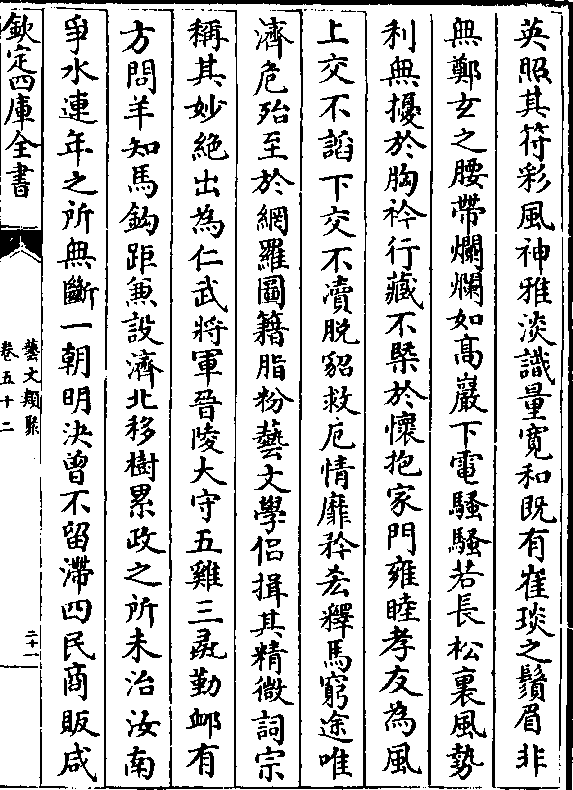 英照其符彩風神雅淡識量寛和既有崔琰之鬚眉非
無鄭玄之腰帶爛爛如髙巖下電騷騷若長松裏風勢
利無擾於胸衿行藏不槩於懷抱家門雍睦孝友為風
上交不謟下交不凟脱貂救厄情靡矜𠫵釋馬窮途唯
濟危殆至於網羅圖籍脂粉藝文學侣揖其精微詞宗
稱其妙絶出為仁武將軍晉陵大守五雞三彘勤邮有
方問羊知馬鈎距兼設濟北移樹累政之所未治汝南
爭水連年之所無斷一朝明決曾不留滯四民商販咸
欽定四庫全書
藝文類聚
卷五十二
二十一